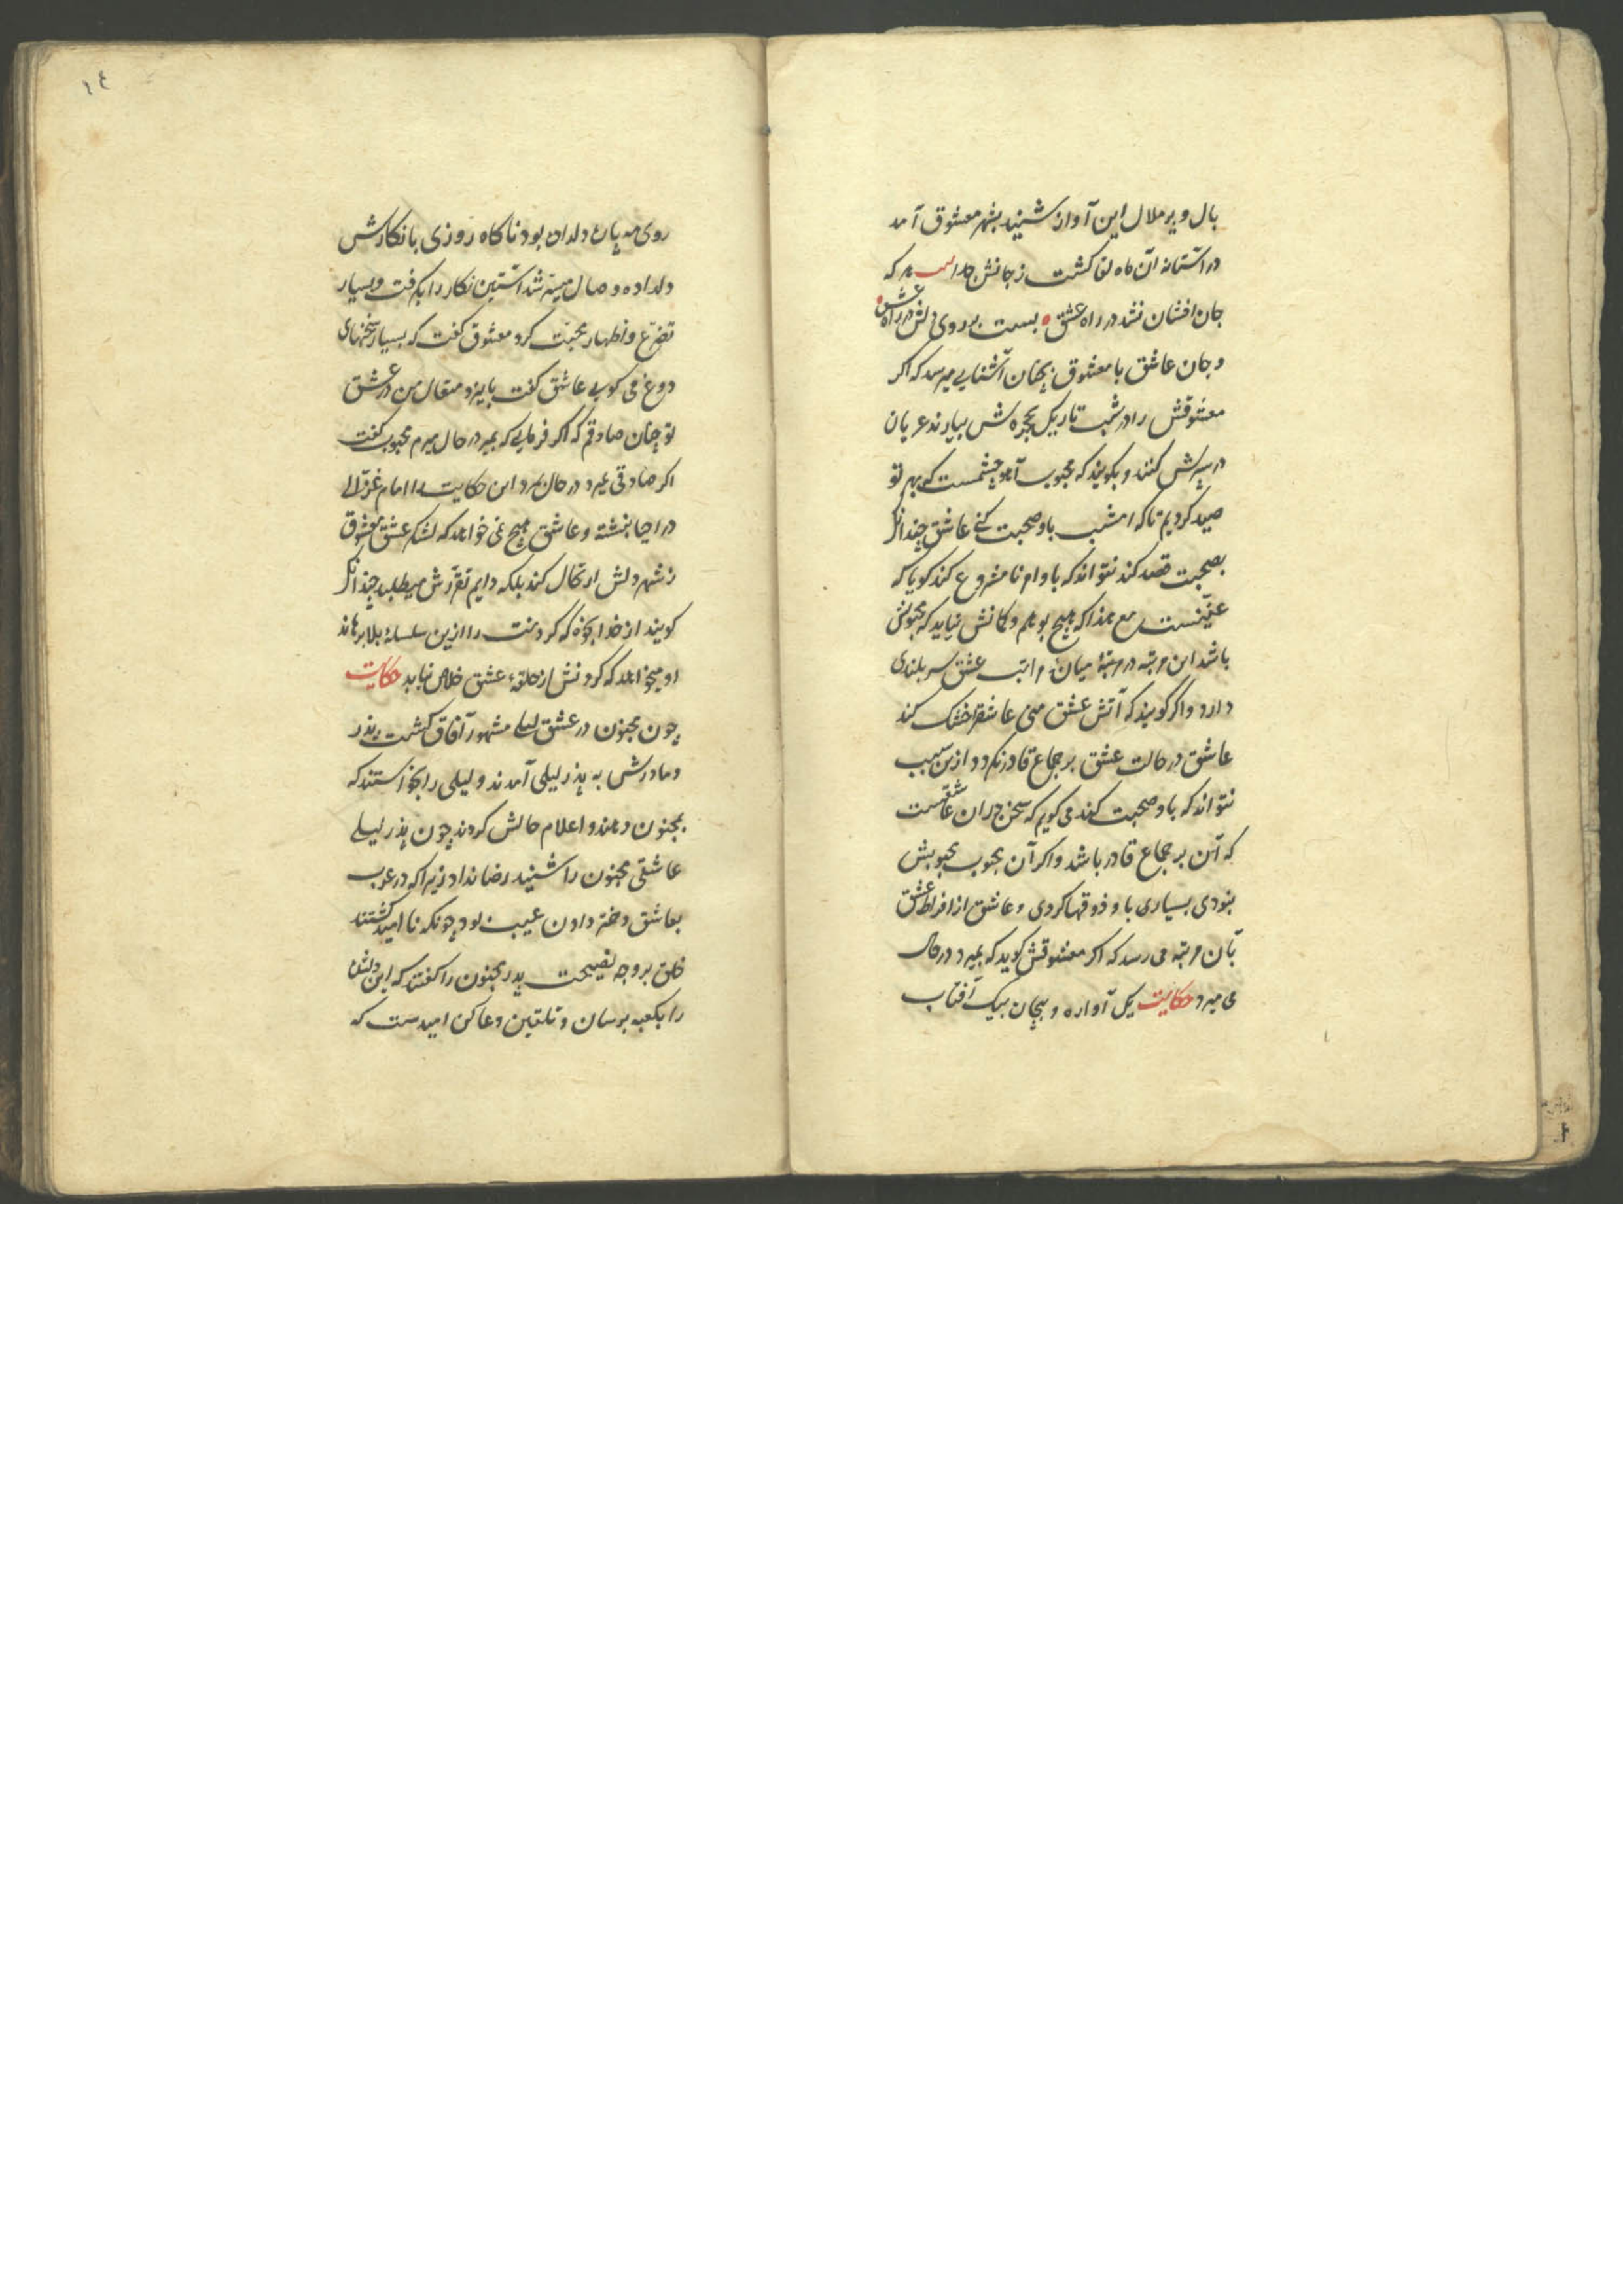 بال و پر ملال این آواز شنید بشهر معشوق آمد
در آستانه آن ماه لقا کشت ز جانش جدا بیت هر که
جان افشان نشد در راه عشق بست بر روی دلش درراه عشق
و جان عاشق با معشوق بچنان آشنایی میرسد که اکر
معشوقش را در شب تاریک بحجره‌ش بیارند عریان
در برش کنند و بکویند که محبوب آهو چشمست که بهر تو
صید کردیم تا که امشب باو صحبت کنی عاشق چندانک
بصحبت قصد کند نتواند که باو ام نامشروع کند کویا که
عنینست مع هذا که هیچ بو هم و کمانش نیاید که محبوبش
باشد این مرتبه در مرتبهٔ میان مراتب عشق سر بلندی
دارد و اکر کویند که آتش عشق منی عاشق را خشک کند
عاشق در حالت عشق بر جماع قادر نکردد ازین سبب
نتواند که باو صحبت کند می کویم که سخن در آن عاشقست
که آن بر جماع قادر باشد و اکر آن محبوب محبوبش
نبودی بسیاری باو ذوقها کردی و عاشق از افراط عشق
بآن مرتبه می رسد که اکر معشوقش کوید که بمیرد درحال
می میرد حکایت یکی آواره و بیجان بیک آفتاب
١٤
روی مه پاره دلدان بود ناکاه روزی با نکارش
دلداده وصال میسر شد آستین نکار را بکرفت و بسیار
تضرع و اظهار محبت کرد معشوق کفت که بسیار سخنهای
دروغ می کویی عاشق کفت بایزد متعال من در عشق
تو چنان صادقم که اکر فرمایی که بمیر در حال میرم محبوب کفت
اکر صادقی بمیر درحال بمرد این حکایت را امام غزالی
در احیا نبشته و عاشق هیچ نمی خواهد که لشکر عشق معشوق
ز شهر دلش ارتحال کند بلکه دایم تقررش میطلبد چندانک
کویند از خدا بخواه که کردنت را ازین سلسلهٔ بلا برهاند
او میخواهد که کردنش از حلقهٔ عشق خلاص نیابد حکایت
چون مجنون در عشق لیلی مشهور آفاق کشت پدر
و مادرش به پدر لیلی آمدند و لیلی را بخواستند که
بمجنون دهند و اعلام حالش کردند چون پدر لیلی
عاشقی مجنون را شنید رضا نداد زیرا که در عرب
بعاشق دختر دادن عیب بود چونکه ناامید کشتند
خلق بر وجه نصیحت پدر مجنون را کفتند که این دلشده
را بکعبه برسان و تلقین دعا کن امیدست که